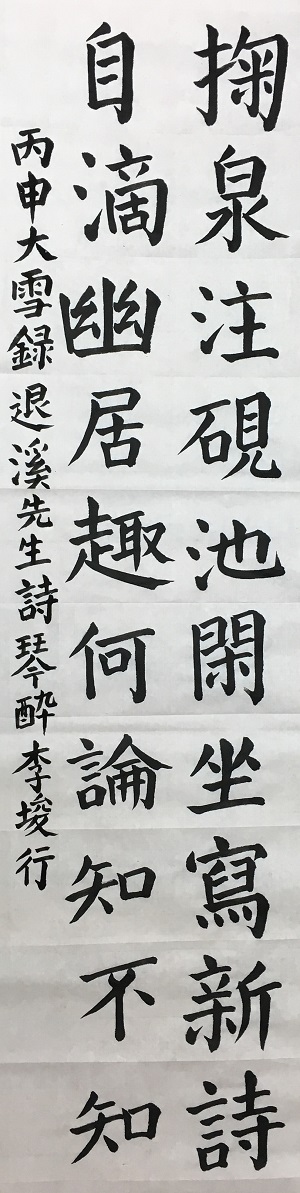 掬泉注硯池閑坐寫新詩
自滴幽居趣何論知不知
丙申大雪録退溪先生詩琴酔李埈行